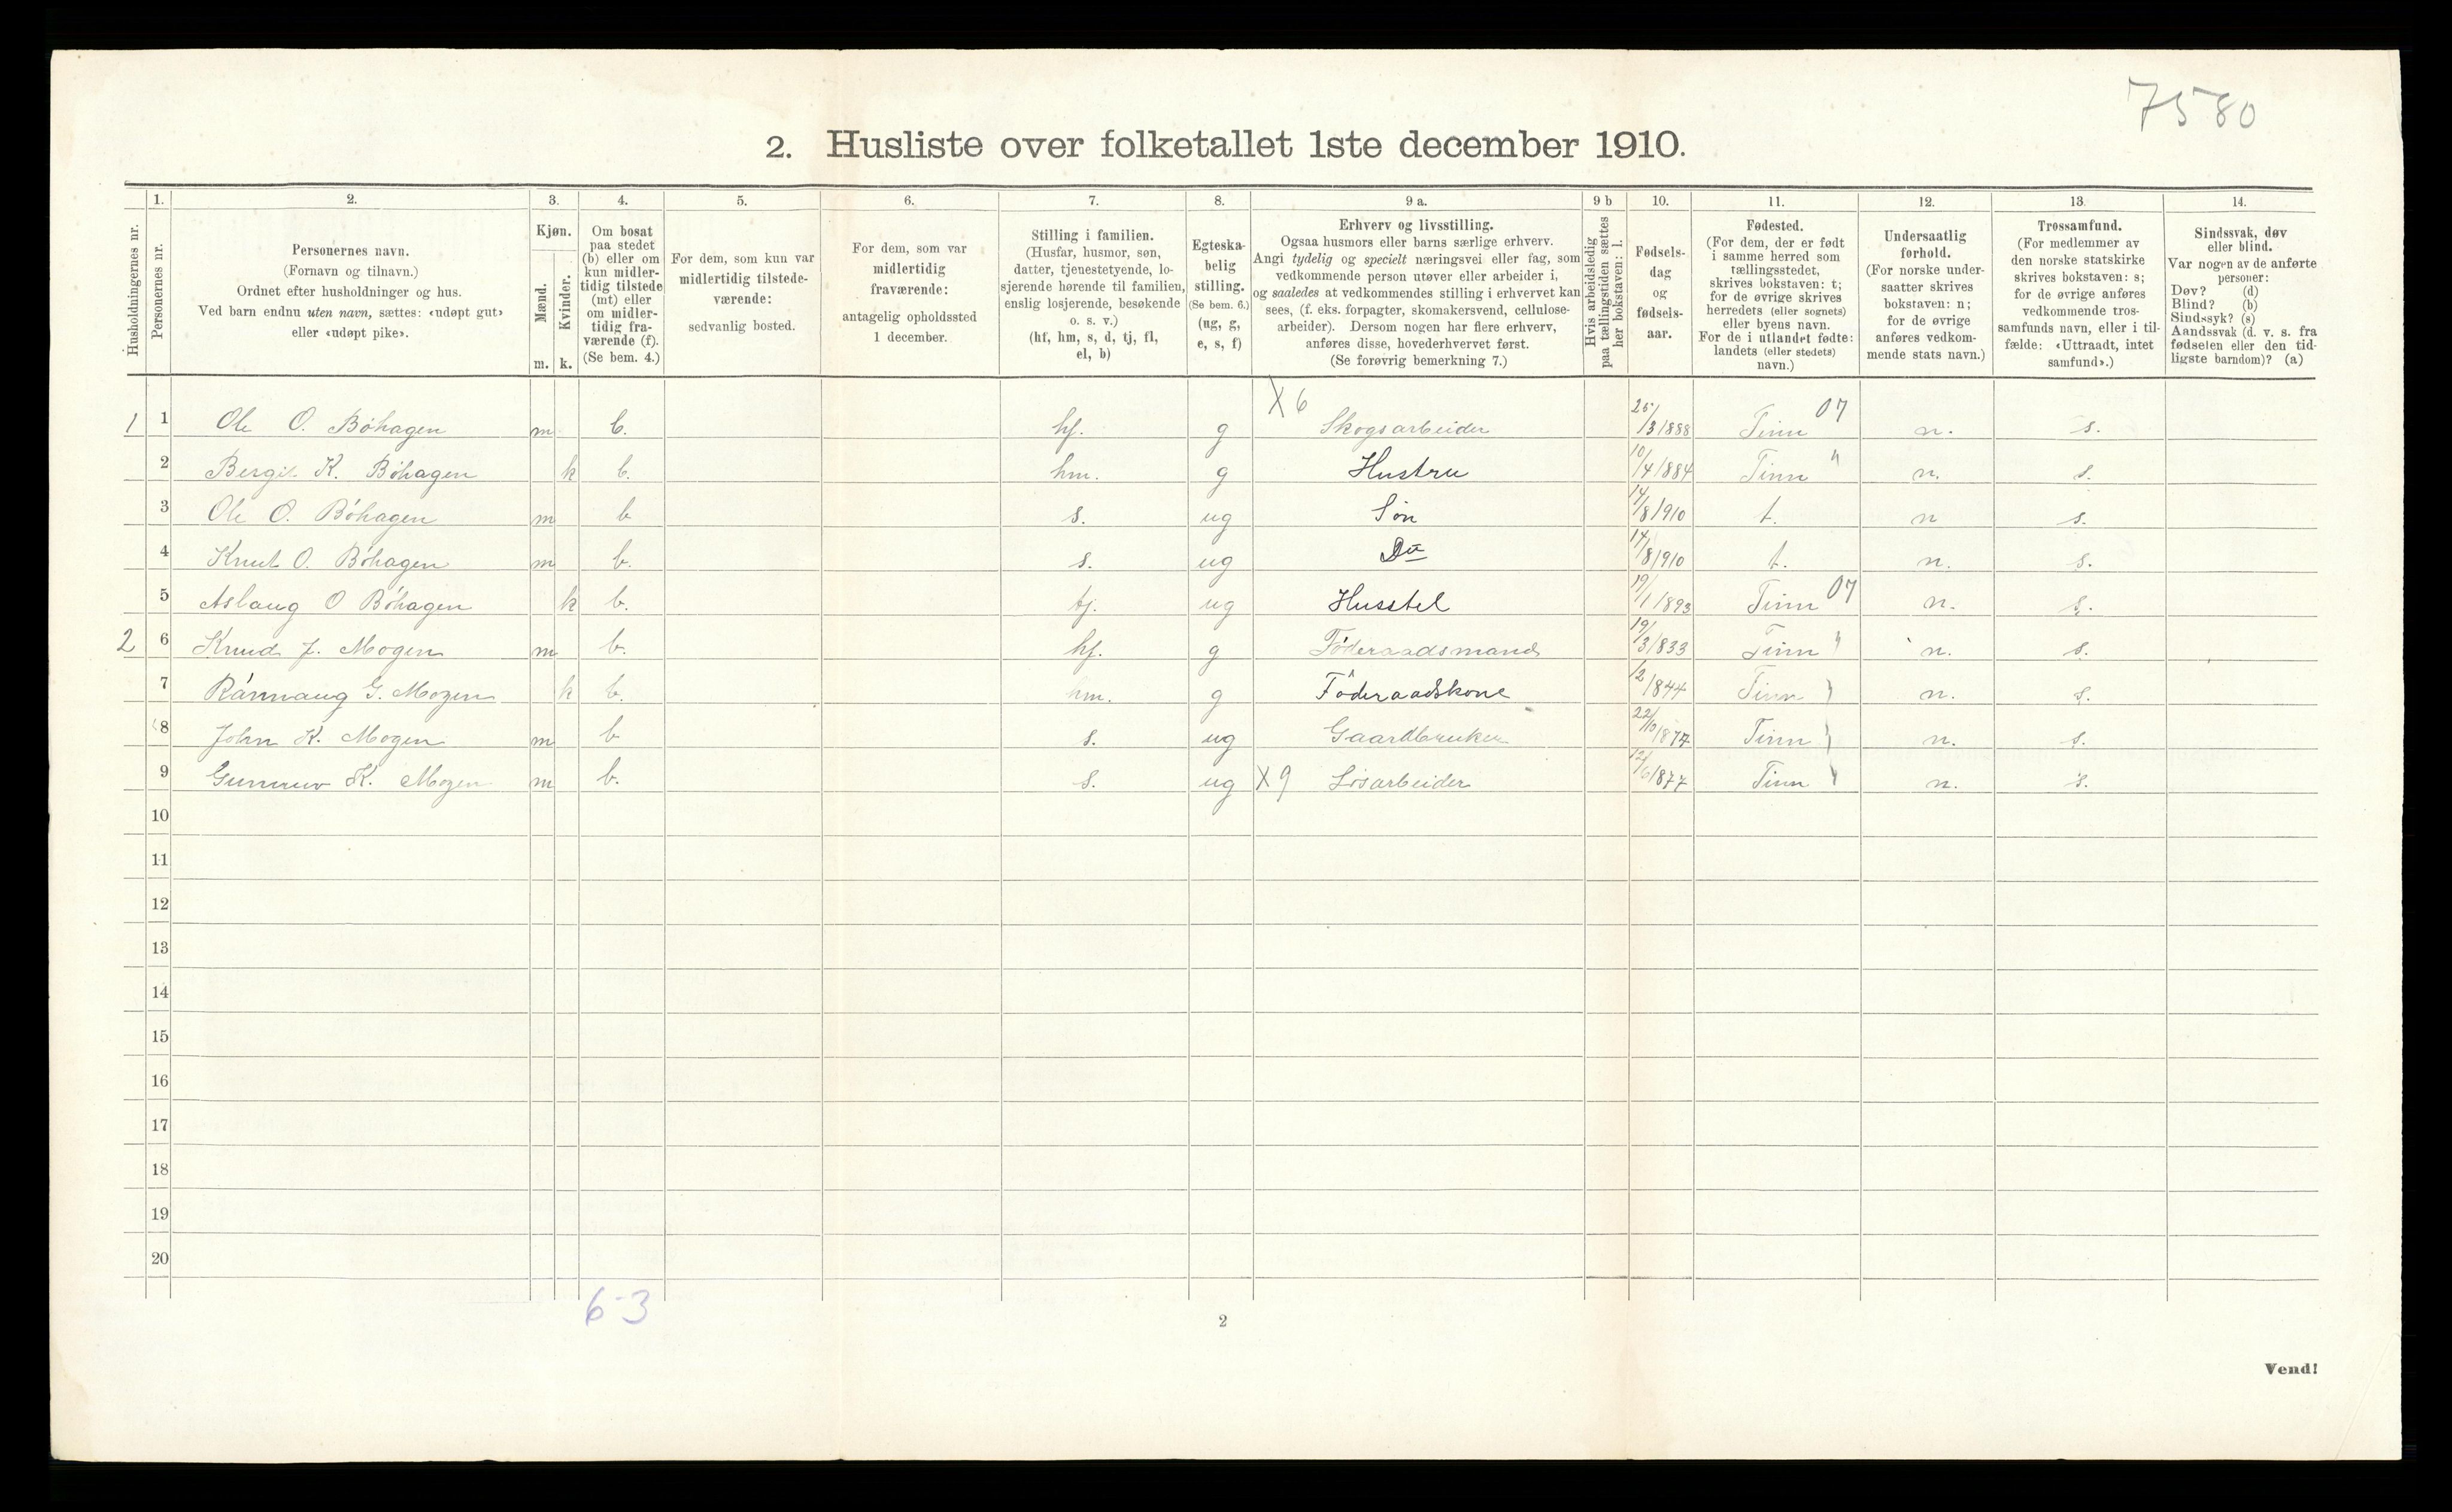 7580
2. Husliste over folketallet 1ste december 1910.
Husholdningernes nr.
1.
Personernes nr.
2.
Personernes navn.
(Fornavn og tilnavn.)
Ordnet efter husholdninger og hus.
Ved barn endnu uten navn, sættes: «udøpt gut»
eller «udøpt pike».
3.
Kjøn.
Mænd.
m.
Kvinder.
k.
4.
Om bosat
paa stedet
(b) eller om
kun midler-
tidig tilstede
(mt) eller
om midler-
tidig fra-
værende (f).
(Se bem. 4.)
5.
For dem, som kun var
midlertidig tilstede-
værende:
sedvanlig bosted.
6.
For dem, som var
midlertidig
fraværende:
antagelig opholdssted
1 december.
7.
Stilling i familien.
(Husfar, husmor, søn,
datter, tjenestetyende, lo-
sjerende hørende til familien,
enslig losjerende, besøkende
o. s. v.)
(hf, hm, s, d, tj, fl,
el, b)
8.
Egteska-
belig
stilling.
(Se bem. 6.)
(ug, g,
e, s, f)
9 a.
Erhverv og livsstilling.
Ogsaa husmors eller barns særlige erhverv.
Angi tydelig og specielt næringsvei eller fag, som
vedkommende person utøver eller arbeider i,
og saaledes at vedkommendes stilling i erhvervet kan
sees, (f. eks. forpagter, skomakersvend, cellulose-
arbeider). Dersom nogen har flere erhverv,
anføres disse, hovederhvervet først.
(Se forøvrig bemerkning 7.)
9 b
Hvis arbeidsledig
paa tællingstiden sættes
her bokstaven: l.
10.
Fødsels-
dag
og
fødsels-
aar.
11.
Fødested.
(For dem, der er født
i samme herred som
tællingsstedet,
skrives bokstaven: t;
for de øvrige skrives
herredets (eller sognets)
eller byens navn.
For de i utlandet fødte:
landets (eller stedets)
navn.)
12.
Undersaatlig
forhold.
(For norske under-
saatter skrives
bokstaven: n;
for de øvrige
anføres vedkom-
mende stats navn.)
13.
Trossamfund.
(For medlemmer av
den norske statskirke
skrives bokstaven: s;
for de øvrige anføres
vedkommende tros-
samfunds navn, eller i til-
fælde: «Uttraadt, intet
samfund».)
14.
Sindssvak, døv
eller blind.
Var nogen av de anførte
personer:
Døv? (d)
Blind? (b)
Sindssyk? (s)
Aandssvak (d. v. s. fra
fødselen eller den tid-
ligste barndom)? (a)
X 6
1 1 Ole O. Böhagen m b. hf. g Skogsarbeider 25/3 1888 Tinn 07 n. s.
2 Bergit K. Böhagen k b. hm. g Hustru 10/4 1884 Tinn " n. s.
3 Ole O. Böhagen m b s. ug Sön 14/8 1910 t. n s.
4 Knut O. Böhagen m b. s. ug Do 14/8 1910 t. n. s.
5 Aslaug O Böhagen k b. tj. ug Husstel 19/1 1893 Tinn 07 n. s.
2 6 Knud J. Mogen m b. hf. g Föderaadsmand 19/3 1833 Tinn " n. s.
7 Rannaug G. Mogen k b. hm. g Föderaadskone 1/2 1844 Tinn " n. s.
8 John K. Mogen m b s. ug Gaardbruker 22/10 1874 Tinn " n. s.
9 K. Mogen m b. s. ug X 9 Lösarbeider 12/6 1877 Tinn " n. s.
10
11
12
13
14
15
16
17
18
19
20
6-3
2
Vend!